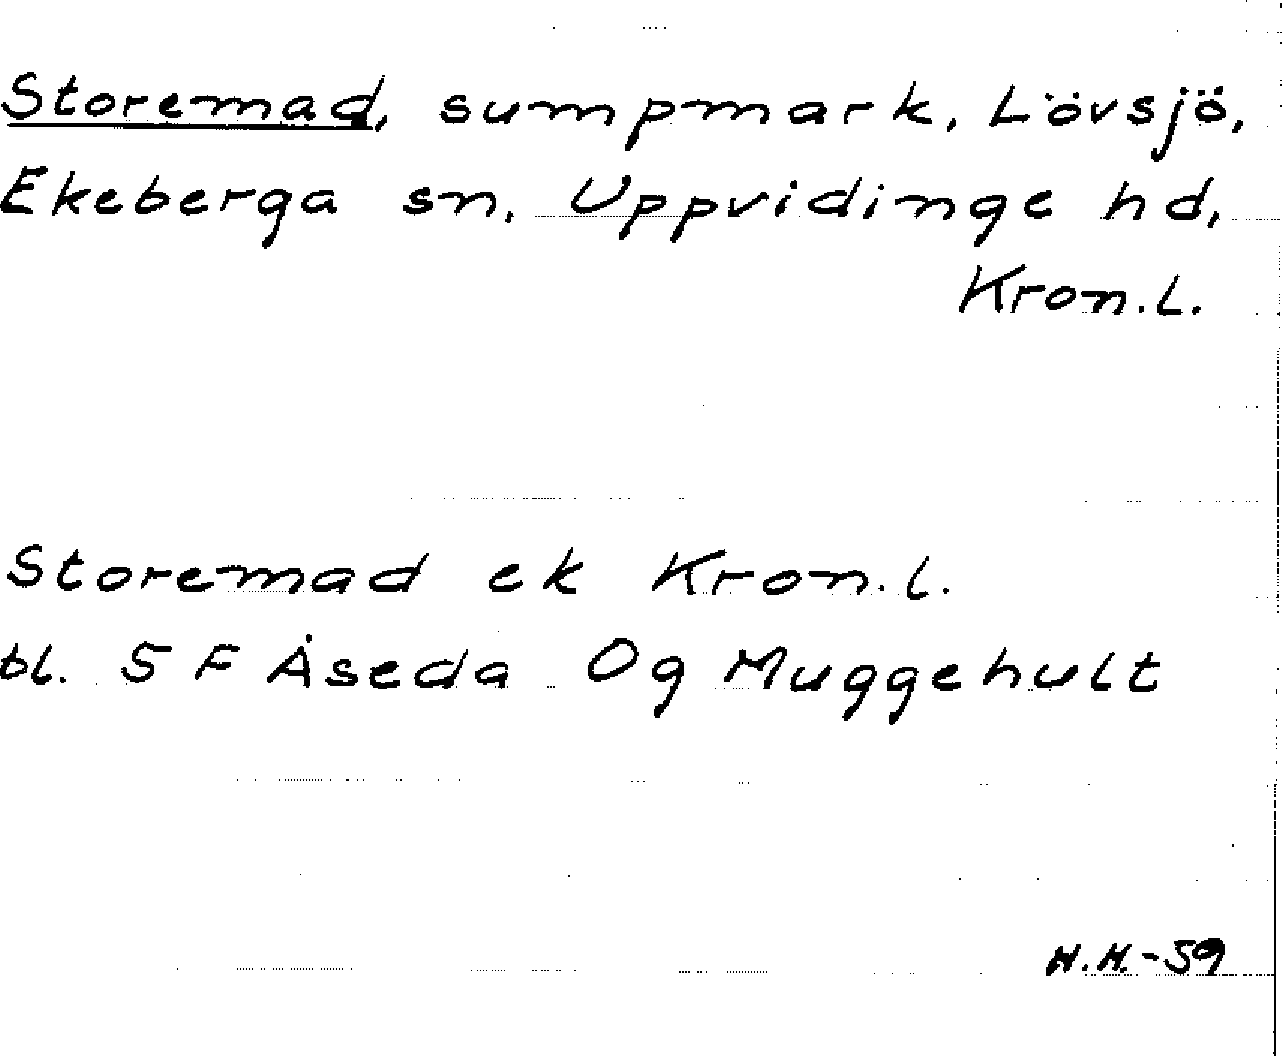 Storemad, sumpmark, Lövsjö,
Ekeberga sn, Uppvidinge hd,
Kron.l.
Storemad ek Kron.l.
bl. 5 F Åseda Og Muggehult
H.H.-59